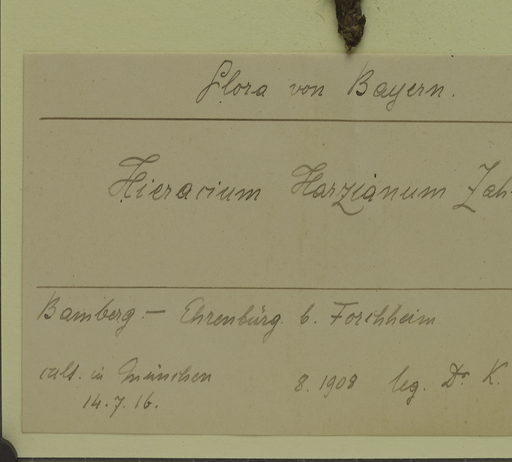 Flora von Bayern.
Hieracium Harzianum Zah
Bamberg – Ehrenbürg b. Forchheim
cult. in München 8. 1908 leg. Dr K.
14. 7. 16.